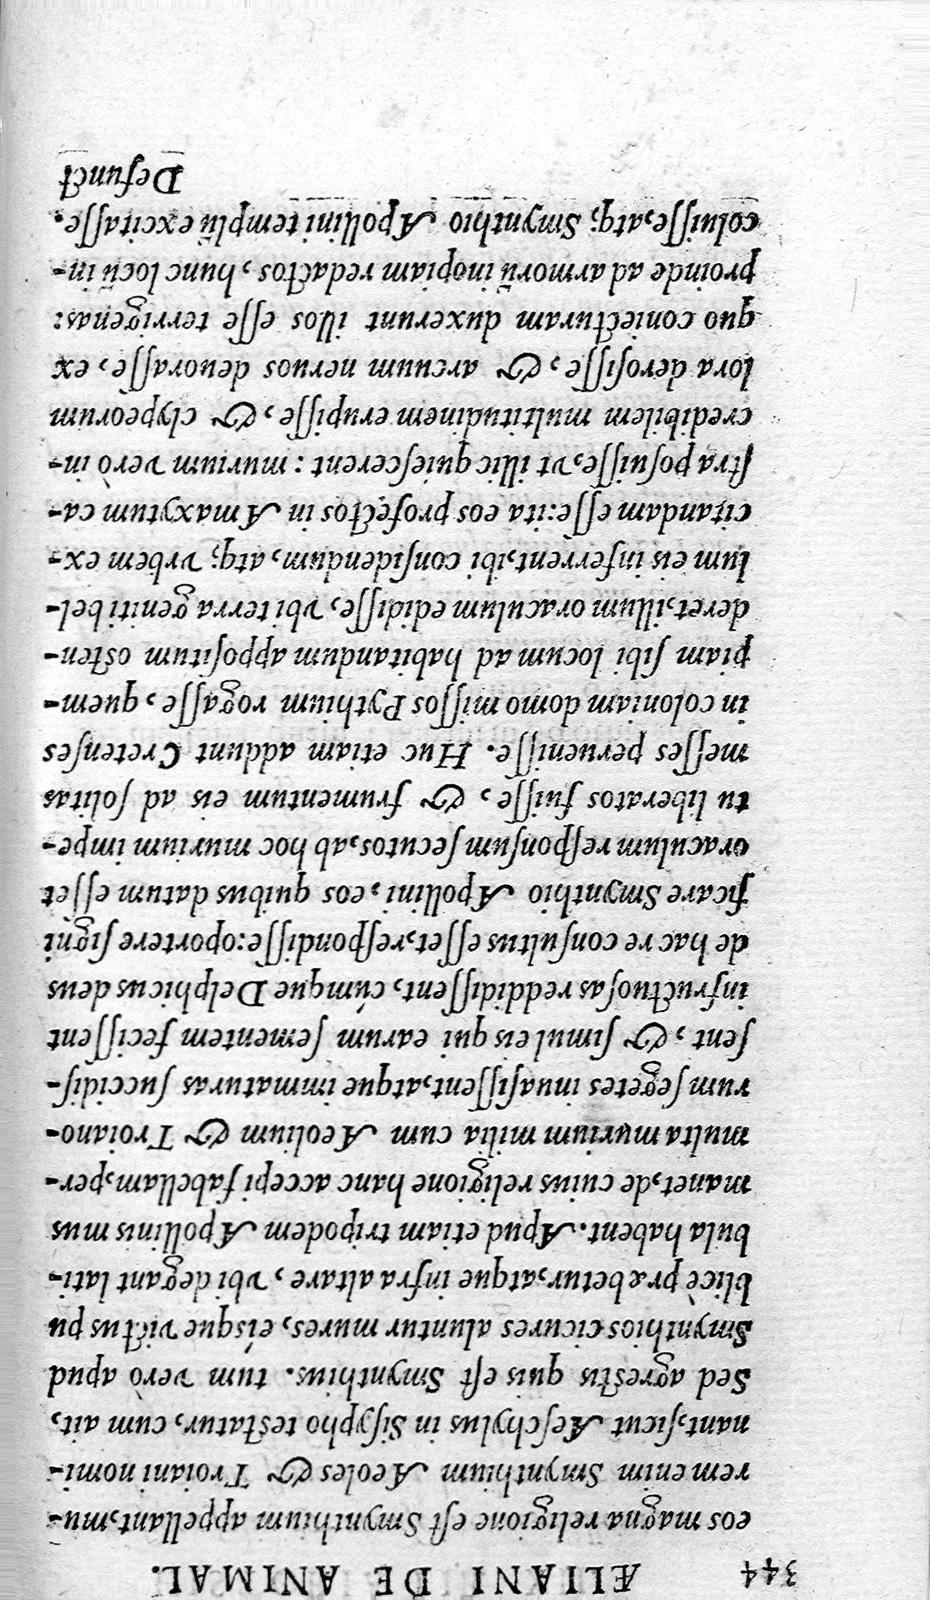 344 ÆLIANI DE ANIMAL.
eos magna religione eſt Smynthium appellant, mu-
rem enim Smynthium Aeoles & Troiani nomi-
nant, ſicut Aeſchylus in Siſypho teſtatur, cum ait,
Sed agreſtis quis eſt Smynthius. tum verò apud
Smynthios cicures aluntur mures, eísque victus pu
blicè præbetur, atque infra altare, vbi degant lati-
bula habent. Apud etiam tripodem Apollinis mus
manet, de cuius religione hanc accepi fabellam, per-
multa murium milia cum Aeolium & Troiano-
rum ſegetes inuaſiſſent, atque immaturas ſuccidiſ-
ſent, & ſimul eis qui earum ſementem feciſſent
infructuoſas reddidiſſent, cúmque Delphicus deus
de hac re conſultus eſſet, reſpondiſſe: oportere ſigni
ficare Smynthio Apollini, eos quibus datum eſſet
oraculum reſponſum ſecutos, ab hoc murium impe-
tu liberatos fuiſſe, & frumentum eis ad ſolitas
meſſes perueniſſe. Huc etiam addunt Cretenſes
in coloniam domo miſſos Pythium rogaſſe, quem-
piam ſibi locum ad habitandum appoſitum oſten-
deret, illum oraculum edidiſſe, vbi terra geniti bel-
lum eis inferrent, ibi conſidendum, atq; vrbem ex-
citandam eſſe: ita eos profectos in Amaxytum ca-
ſtra poſuiſſe, vt illic quieſcerent: murium verò in-
credibilem multitudinem erupiſſe, & clypeorum
lora deroſiſſe, & arcuum neruos deuoraſſe, ex
quo coniecturam duxerunt illos eſſe terrigenas:
proinde ad armorū inopiam redactos, hunc locū in-
coluiſſe, atq; Smynthio Apollini templū excitaſſe.
Defunct